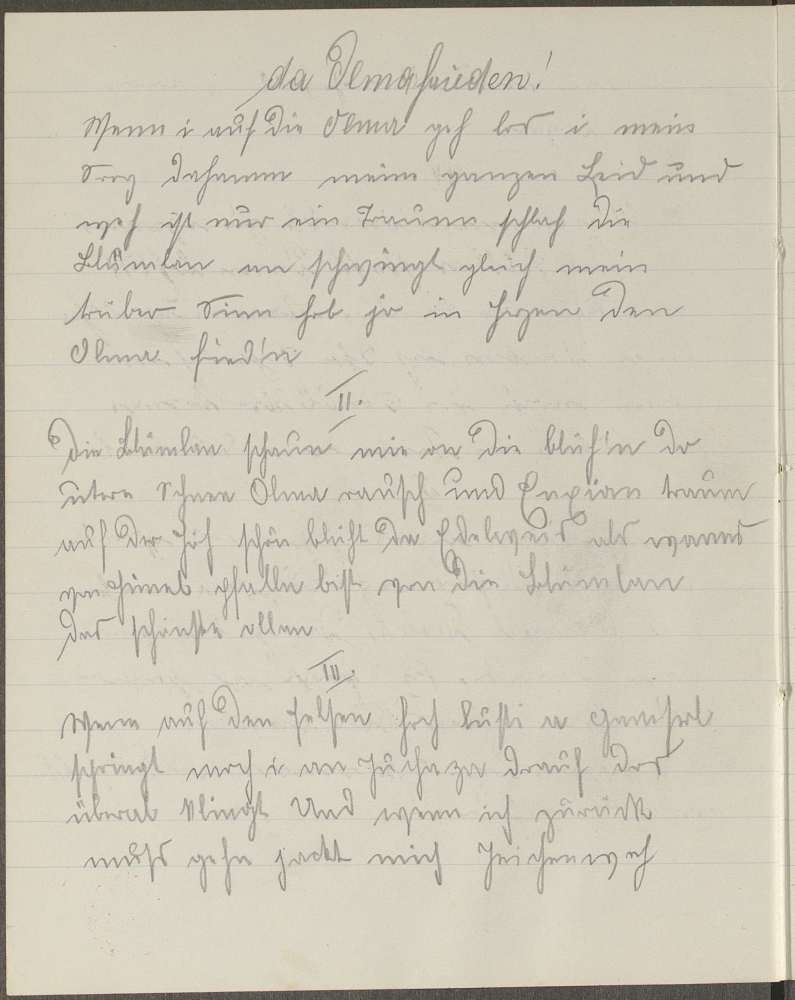 da Olmafrieden!
Wenn i auf die Olma geh los i mein
Sorg dahamm mein ganzen Leid und
weh ist nur ein Traum schlah die
Blümlan an schwingt gleich mein
trüber Sinn hob jo in Herzen den
Olma fried'n
II.
Die Blümlan schaun mir an die blüh'n do
untern Schnee Olma rausch und Enzian traum
auf der Höh schön blüht da Edelweis als wanns
von Himel gfalln bist von die Blümlan
das schönste ollen
III.
Wenn auf den Felsen hoch lusti a Gamserl
springt moch i an Juchaza drauf das
überal klingt Und wenn ich zurück
muss gehn packt mich